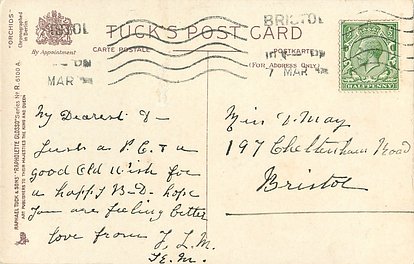 "ORCHIDS"
Chromographed
in Berlin
By Appointment
TUCK'S POST CARD
CARTE POSTALE
POSTKARTE
(FOR ADDRESS ONLY)
BRISTOL
MAR
BRISTOL
7 MAR
HALFPENNY
RAPHAEL TUCK & SONS' "RAPHOLETTE GLOSSO" SERIES No R. 6100 A.
ART PUBLISHERS TO THEIR MAJESTIES THE KING AND QUEEN
My Dearest V -
Just a P.C. & a
good Old Wish for
a happy B-D. hope
you are feeling better
love from F. L. M.
Miss V. May
197 Cheltenham Road
Bristol